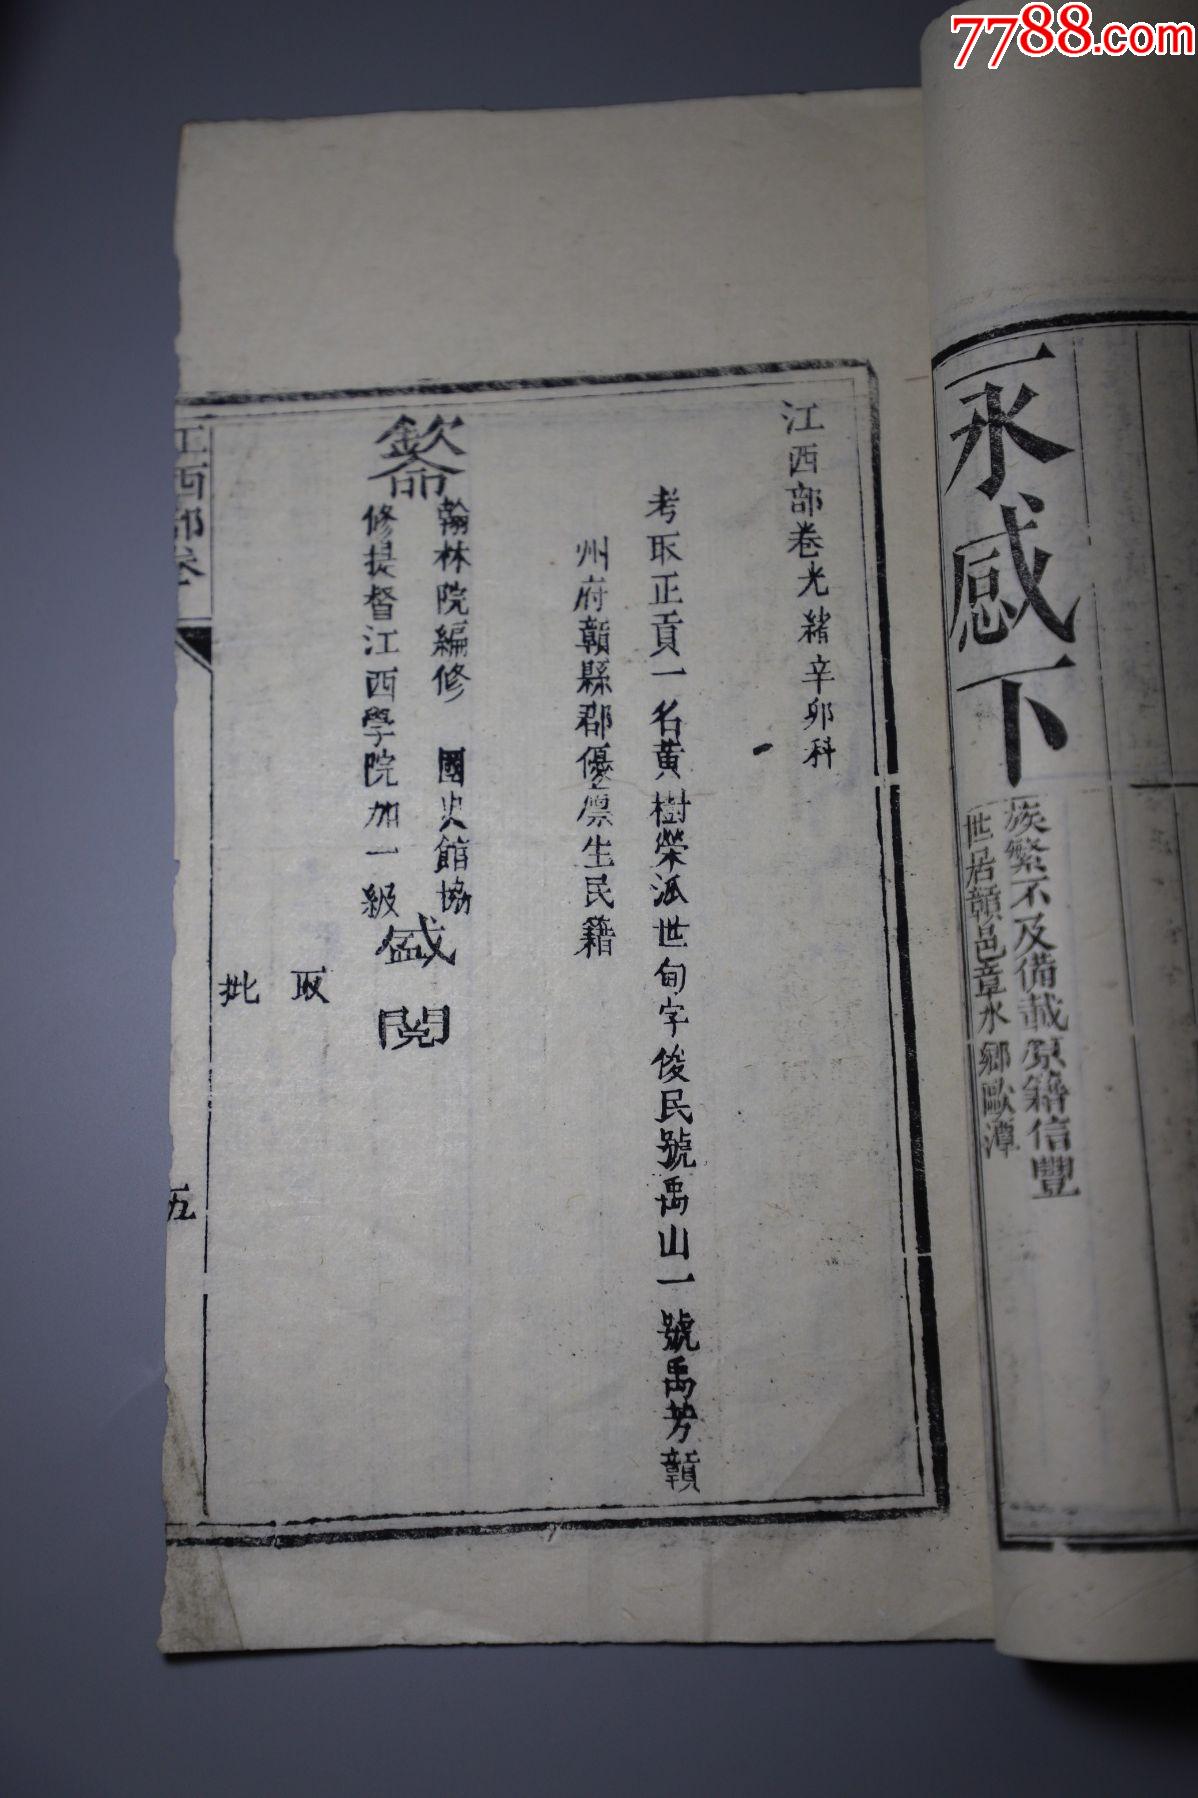 7788.com
永感下
族繁不及備載原籍信豐
世居贛邑章水鄉歐潭
江西部卷光緒辛卯科
考取正貢一名黃樹榮派世甸字俊民號禹山一號禹芳贛
州府贛縣郡優廩生民籍
欽命
翰林院編修 國史館協
修提督江西學院加一級
盛閱
取
批
江西部卷
五